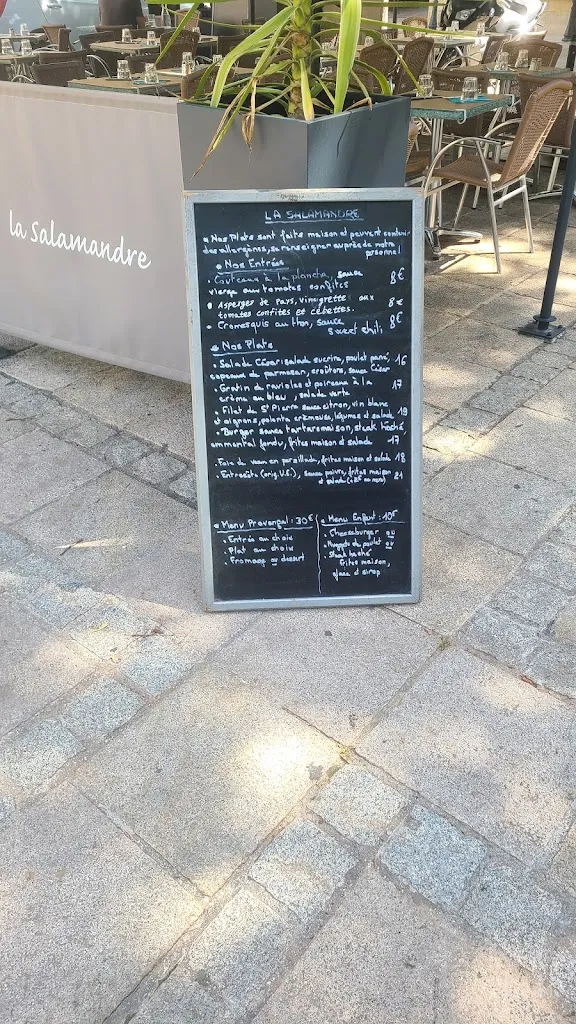 la salamandre
LA SALAMANDRE
Nos Plats sont faits maison et peuvent contenir
des allergènes, se renseigner auprès de notre
personnel
Nos Entrées
Couteaux à la plancha, sauce
vierge aux tomates confites 8€
Asperges de Pays, vinaigrette aux
tomates confites et cébettes. 8€
Cromesquis au thon, sauce
sweet chili 8€
Nos Plats
Salade César: salade sucrine, poulet pané, 16
copeaux de parmesan, croûtons, sauce César
Gratin de ravioles et poireaux à la 17
crème au bleu, salade verte
Filet de St Pierre sauce citron, vin blanc
et oignons, polenta crémeuse, légumes et salade 19
Burger sauce tartare maison, steak hâché
emmental fondu, frites maison et salade 17
Foie de veau en persillade, frites maison et salade 18
Entrecôte (orig. U.E.), sauce poivre, frites maison 21
et salade
Menu Provençal: 30€
Entrée au choix
Plat au choix
Fromage ou dessert
Menu Enfant: 10€
Cheeseburger ou
Nuggets de poulet ou
Steak haché
frites maison,
glace et sirop